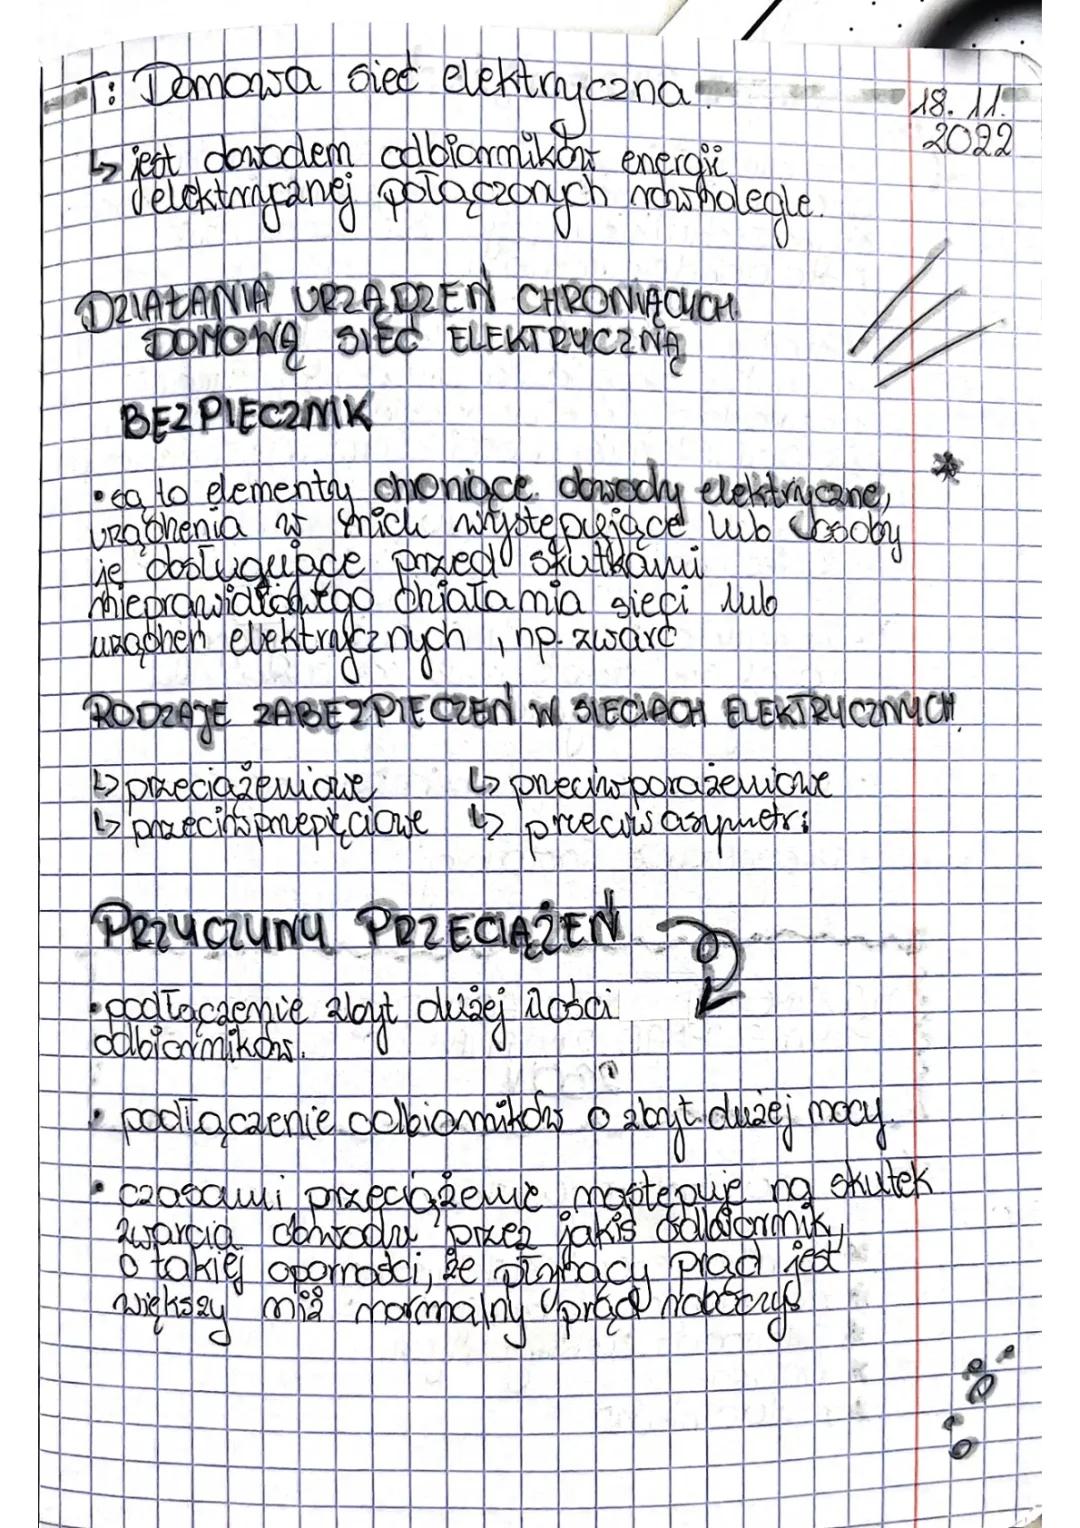 T: Domowa sieć elektryczna
18. 11.
2022
↳ jest dowodem odbiorników energii
elektrycznej połączonych równolegle.
DZIAŁANIA URZĄDZEŃ CHRONIĄCYCH
DOMOWĄ SIEĆ ELEKTRYCZNĄ
BEZPIECZNIK
• są to elementy chroniące dowody elektryczne, *
urządzenia w nich występujące lub osoby
je obsługujące przed skutkami
nieprawidłowego działania sieci lub
urządzeń elektrycznych, np. zwarć
RODZAJE ZABEZPIECZEŃ W SIECIACH ELEKTRYCZNYCH
↳ przeciążeniowe ↳ przeciwporażeniowe
↳ przeciwprzepięciowe ↳ przeciwasymetri
PRZYCZYNY PRZECIĄŻEŃ
• podłączenie zbyt dużej ilości
odbiorników.
• podłączenie odbiorników o zbyt dużej mocy.
• czasami przeciążenie następuje na skutek
zwarcia dowodu przez jakiś odbiornik,
o takiej oporności, że płynący prąd jest
większy niż normalny prąd roboczy